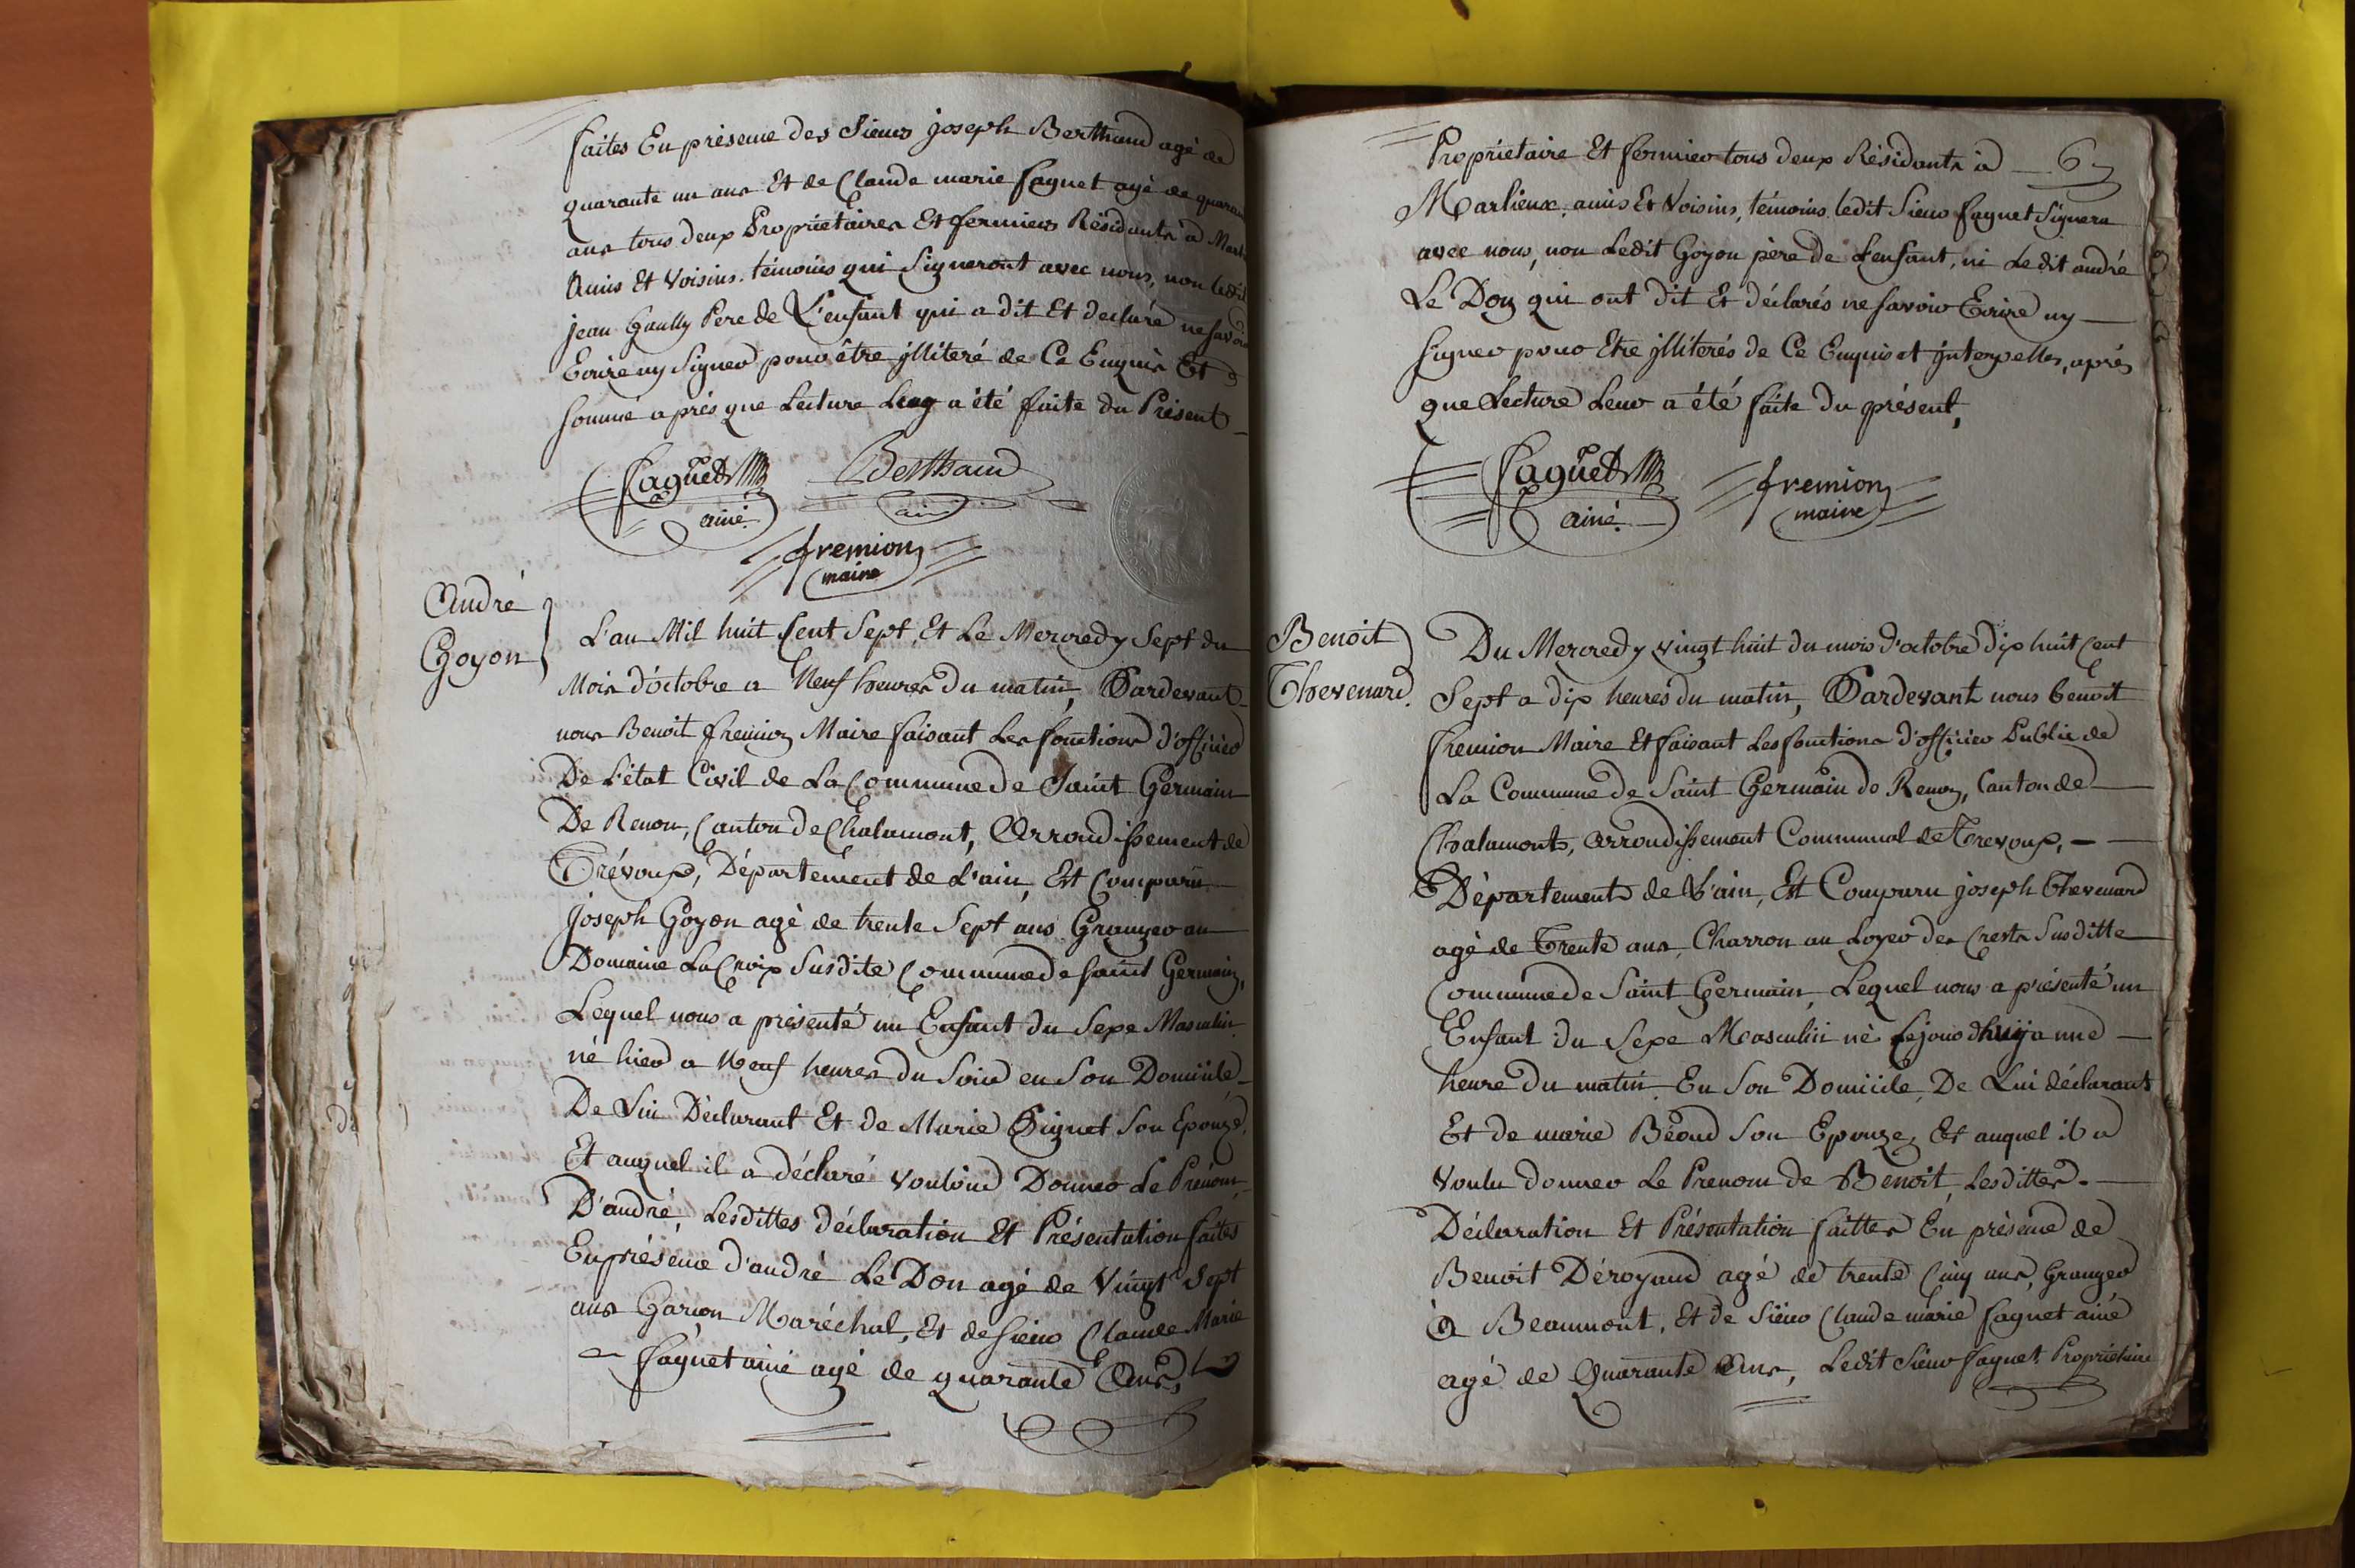 faites En présence des Sieurs joseph Berthaud agé de
quarante un ans Et de Claude marie faguet agé de quaran
ans tous deux Propriétaires Et fermiers Résidants a Marl
Amis Et Voisins. témoins qui Signeront avec nous, non ledit
jean Gaully Pere de L'enfant qui a dit Et declaré ne savoir
Ecrire ny Signer pour être jlliteré de Ce Enquis Et
Sommé après que Lecture Luy a été faite du Présent
Faguet Berthaud
ainé ainé
fremion
maire
André
Goyon
L'an Mil huit Cent Sept, Et Le Mercredy Sept du
Mois d'octobre a Neuf heures du matin, Pardevant
nous Benoit fremion Maire faisant Les fonctions d'officier
De L'état Civil de La Commune de Saint Germain
De Renon, Canton de Chalamont, Arrondissement de
Trévoux, Département de L'ain, Est Comparu
Joseph Goyon agé de trente Sept ans Granger au
Domaine LaCroix Susdite Commune de Saint Germain,
Lequel nous a présenté un Enfant du Sexe Masculin
né hier a Neuf heures du Soir en Son Domicile
De Lui Déclarant Et de Marie Signet Son Epouze,
Et auquel il a déclaré Vouloir Donner Le Prénom
D'andré, Lesdittes déclaration Et Présentation faites
En présence d'andré Le Don agé de Vingt Sept
ans Garçon Maréchal, Et de Sieur Claude Marie
faguet ainé agé de quarante Ans,
Propriétaire Et fermier tous deux Résidants à 6
Marlieux, amis Et Voisins, témoins, ledit Sieur faguet Signera
avec nous, non Ledit Goyon père de L'enfant, ni Ledit andré
Le Don qui ont dit Et déclarés ne savoir Ecrire ny
Signer pour Etre jlliterés de Ce Enquis et jnterpellés, après
que Lecture Leur a été faite du présent,
Faguet fremion
ainé. maire
Benoit
Thevenard.
Du Mercredy vingt huit du mois d'octobre dix huit Cent
Sept a dix heures du matin, Pardevant nous benoit
fremion Maire Et faisant Les fonctions d'officier Public de
La Commune de Saint Germain de Renon, Canton de
Chalamont, arrondissement Communal de Trevoux,
Département de L'ain, Est Comparu joseph Thevenard
agé de Trente ans, Charron au Loyer des Crests Susditte
Commune de Saint Germain, Lequel nous a présenté un
Enfant du Sexe Masculin né Cejourd'huy a une
heure du matin, En Son Domicile, De Lui déclarant
Et de marie Béoud Son Epouze, Et auquel il a
Voulu donner Le Prenom de Benoit, Lesdittes
Déclaration Et Présentation faittes En présence de
Benoit Déroyaud agé de trente Cinq ans, Granger
A Beaumont, Et de Sieur Claude marie faguet ainé
agé de Quarante Ans, Ledit Sieur faguet Propriétaire